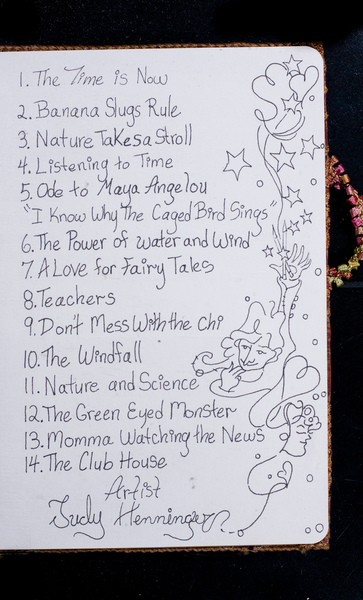 1. The Time is Now
2. Banana Slugs Rule
3. Nature Takes a Stroll
4. Listening to Time
5. Ode to Maya Angelou
"I Know Why The Caged Bird Sings"
6. The Power of water and Wind
7. A Love for Fairy Tales
8. Teachers
9. Don't Mess With the Chi
10. The Windfall
11. Nature and Science
12. The Green Eyed Monster
13. Momma Watching the News
14. The Club House
Artist
Judy Henninger